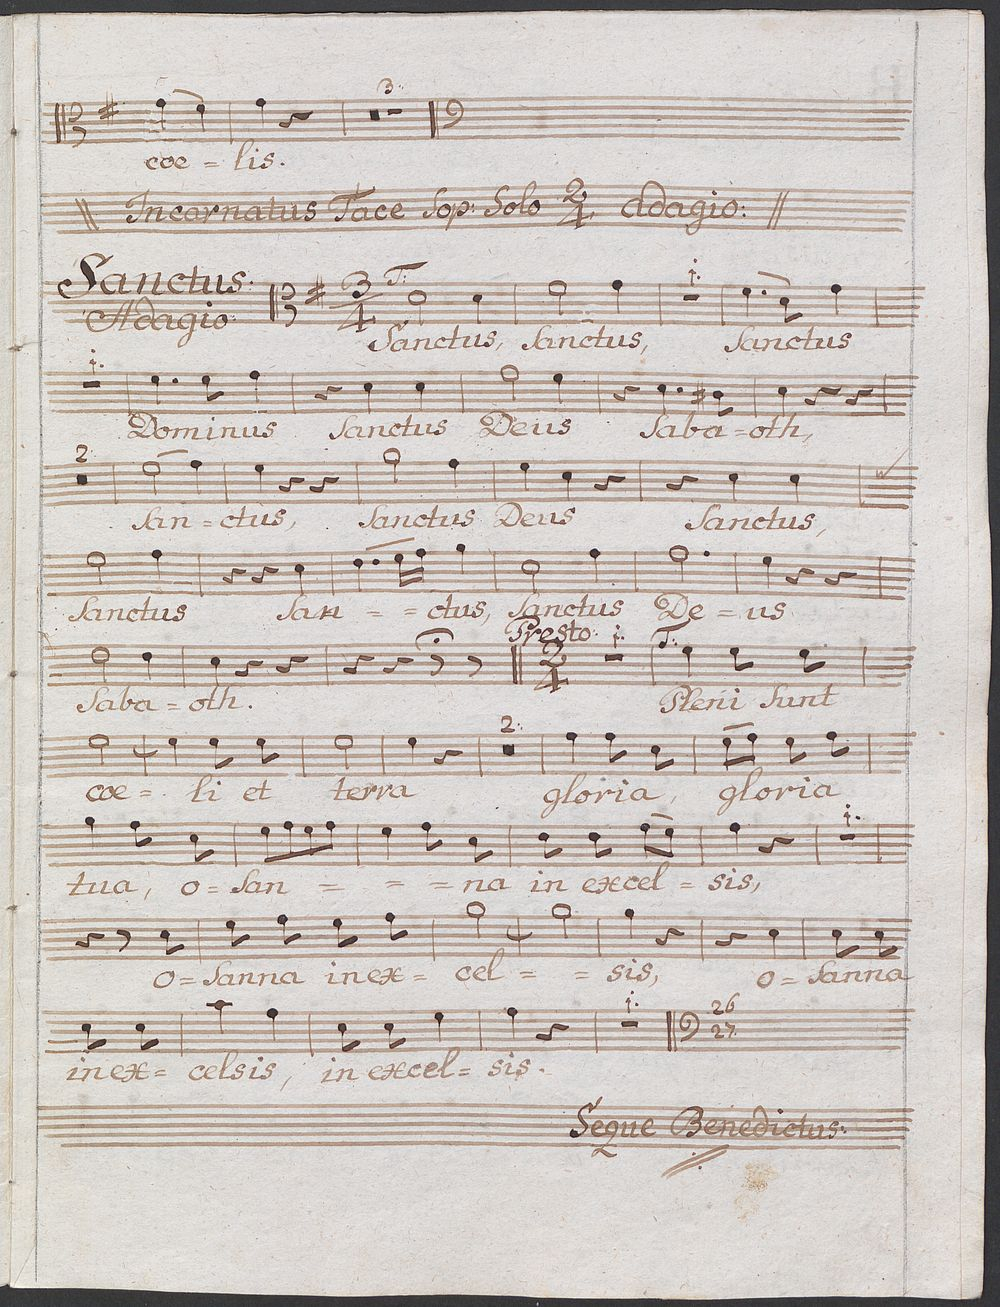 3.
coe = lis.
Incarnatus Tace Sop: Solo 2/4 Adagio:
Sanctus: 3/4 T: 1.
Adagio
Sanctus, sanctus, sanctus
1.
Dominus sanctus Deus Saba=oth,
2
san=ctus, sanctus Deus Sanctus,
Sanctus san = = ctus, sanctus De=us
Presto: 2/4 1. T:
Saba=oth. Pleni sunt
2.
coe = li et terra gloria, gloria
1.
tua, o=san = = = na in excel=sis,
o=sanna in ex= cel = = sis, o=sanna
1. 26
27.
in ex= celsis, in excel=sis.
Seque Benedictus.